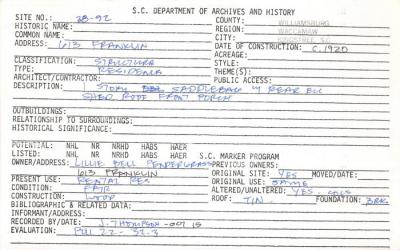 S.C. DEPARTMENT OF ARCHIVES AND HISTORY
SITE NO.: 28-92
COUNTY: WILLIAMSBURG
HISTORIC NAME:
REGION: WACCAMAW
COMMON NAME:
CITY: KINGSTREE, S.C.
ADDRESS: 613 FRANKLIN
DATE OF CONSTRUCTION: C. 1920
ACREAGE:
CLASSIFICATION: STRUCTURE
STYLE:
TYPE: RESIDENCE
THEME(S):
ARCHITECT/CONTRACTOR:
PUBLIC ACCESS:
DESCRIPTION: 1 STORY SADDLEBAG W REAR ELL
SHED ROOF FRONT PORCH
OUTBUILDINGS:
RELATIONSHIP TO SURROUNDINGS:
HISTORICAL SIGNIFICANCE:
POTENTIAL: NHL NR NRHD HABS HAER
LISTED: NHL NR NRHD HABS HAER S.C. MARKER PROGRAM
OWNER/ADDRESS: LILLIE BELL PENDERGRASS
PREVIOUS OWNERS:
613 FRANKLIN
ORIGINAL SITE: YES MOVED/DATE:
PRESENT USE: RENTAL RES
ORIGINAL USE: SAME
CONDITION: FAIR
ALTERED/UNALTERED: YES
CONSTRUCTION: WOOD
ROOF: TIN FOUNDATION: BRK
BIBLIOGRAPHIC & RELATED DATA:
INFORMANT/ADDRESS:
RECORDED BY/DATE: J. THOMPSON
EVALUATION: